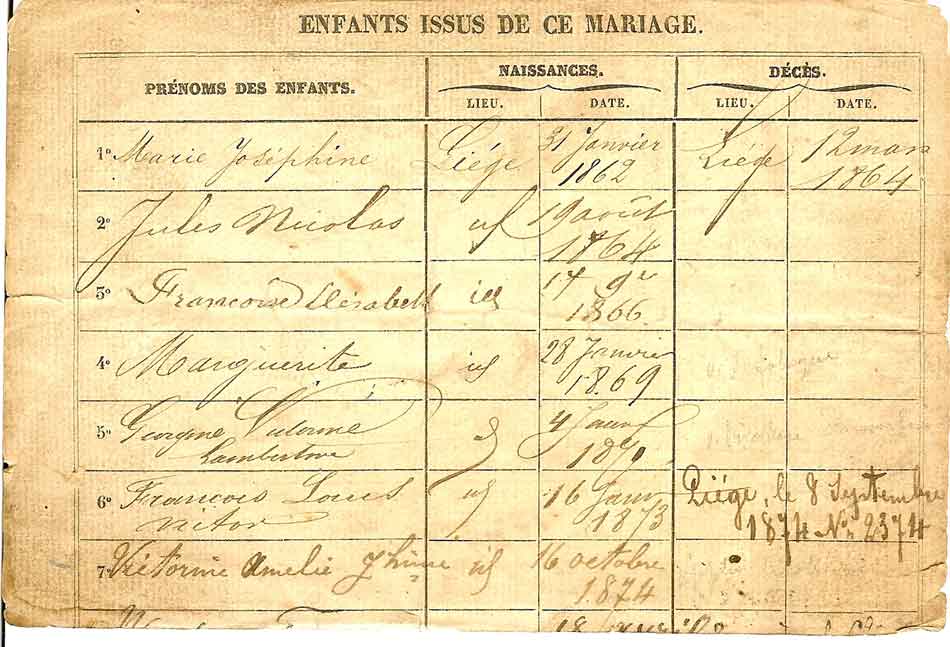 ENFANTS ISSUS DE CE MARIAGE.
PRÉNOMS DES ENFANTS.
NAISSANCES.
DÉCÈS.
LIEU.
DATE.
LIEU.
DATE.
1º Marie Joséphine Liége 31 Janvier 1862 Liége 12 mars 1864
2º Jules Nicolas id 19 août 1864
3º Françoise Elisabeth id 17 9re 1866
4º Marguerite id 28 Janvier 1869
5º Georgine
Lambertine id 4 Janv
6º François Louis
Victor id 16 Janv 1873 Liége, le 8 Septembre
1874 Nº 2374
7º Victorine Amelie id 16 octobre
1874